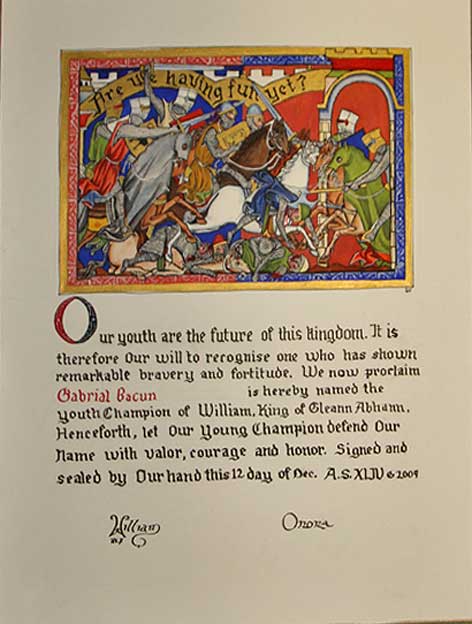 Are we having fun yet?
Our youth are the future of this kingdom. It is
therefore Our will to recognise one who has shown
remarkable bravery and fortitude. We now proclaim
Gabrial Bacun is hereby named the
youth Champion of William, King of Gleann Abhann.
Henceforth, let Our Young Champion defend Our
Name with valor, courage and honor. Signed and
sealed by Our hand this 12 day of Dec. A.S. XLIV © 2009
William Onora